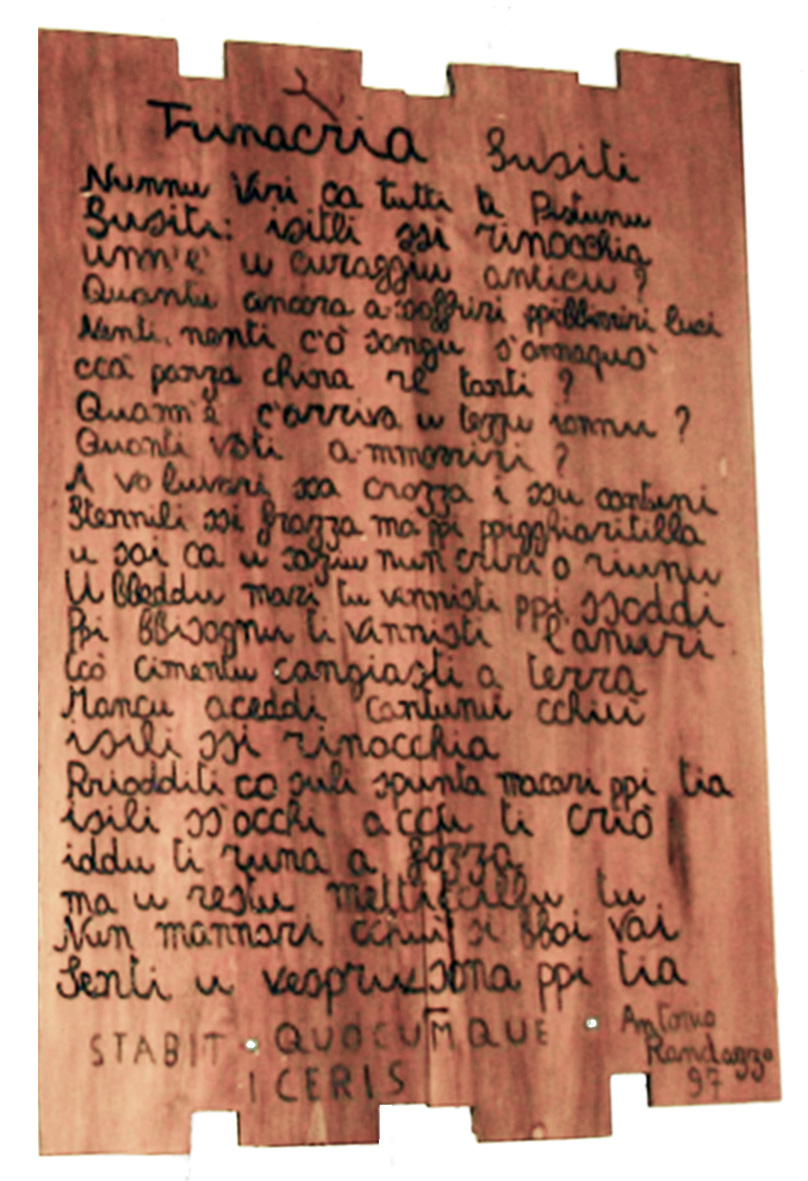 Trinacria Susiti
Nunnu Viri ca tutti ti Pistunu
Susiti: isitli ssi rinocchia
unn'è u curaggiu anticu?
Quantu ancora a soffriri ppi bbiriri luci
Nenti, nenti c'ò sangu s'annaquò
ccà panza china re tanti?
Quann'è c'arriva u tezzu jonnu?
Quanti voti a mmoriri?
A vo luvari ssa crozza i ssu cantuni
Stennili ssi frazza ma ppi ppigghiaritilla
u sai ca u saziu nun criri o riunu
U bbeddu mari tu vinnisti ppi ssoddi
Ppi bbisognu ti vinnisti l'anuri
ccò cimentu cangiasti a terra
Mancu aceddi cantunu cchiù
isili ssi rinocchia
Rrioddili co suli spunta macari ppi tia
isili ss'occhi a ccu ti criò
iddu ti runa a fozza
ma u restu mettitillu tu
Nun mannari cchiù si bboi vai
Senti u vespru sona ppi tia
STABIT QUOCUMQUE
ICERIS
Antonio
Randazzo
97